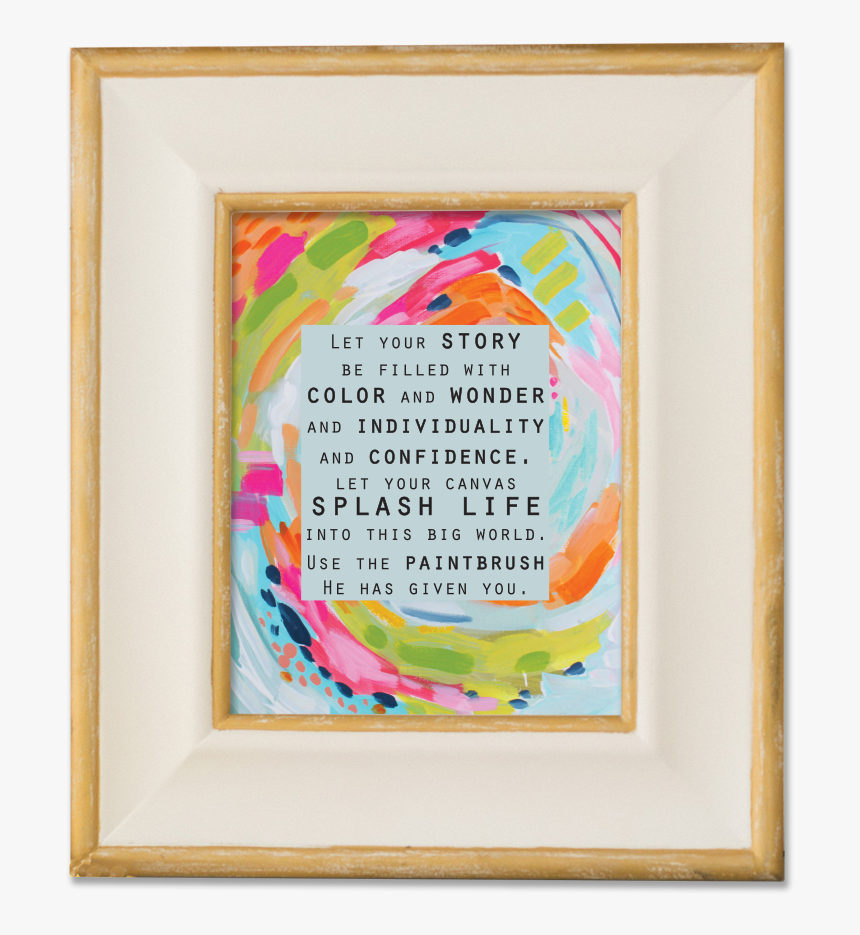 Let your STORY
be filled with
COLOR and WONDER
and INDIVIDUALITY
and CONFIDENCE.
let your canvas
SPLASH LIFE
into this big world.
Use the PAINTBRUSH
He has given you.